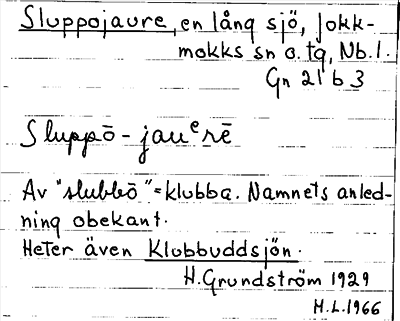 Sluppojaure, en lång sjö, Jokk-
mokks sn o. tg, Nb.l.
Gn 21 b 3
Sluppō-jauᵉrē
Av "slubbō" = klubba. Namnets anled-
ning obekant.
Heter även Klubbuddsjön.
H. Grundström 1929
M.L. 1966